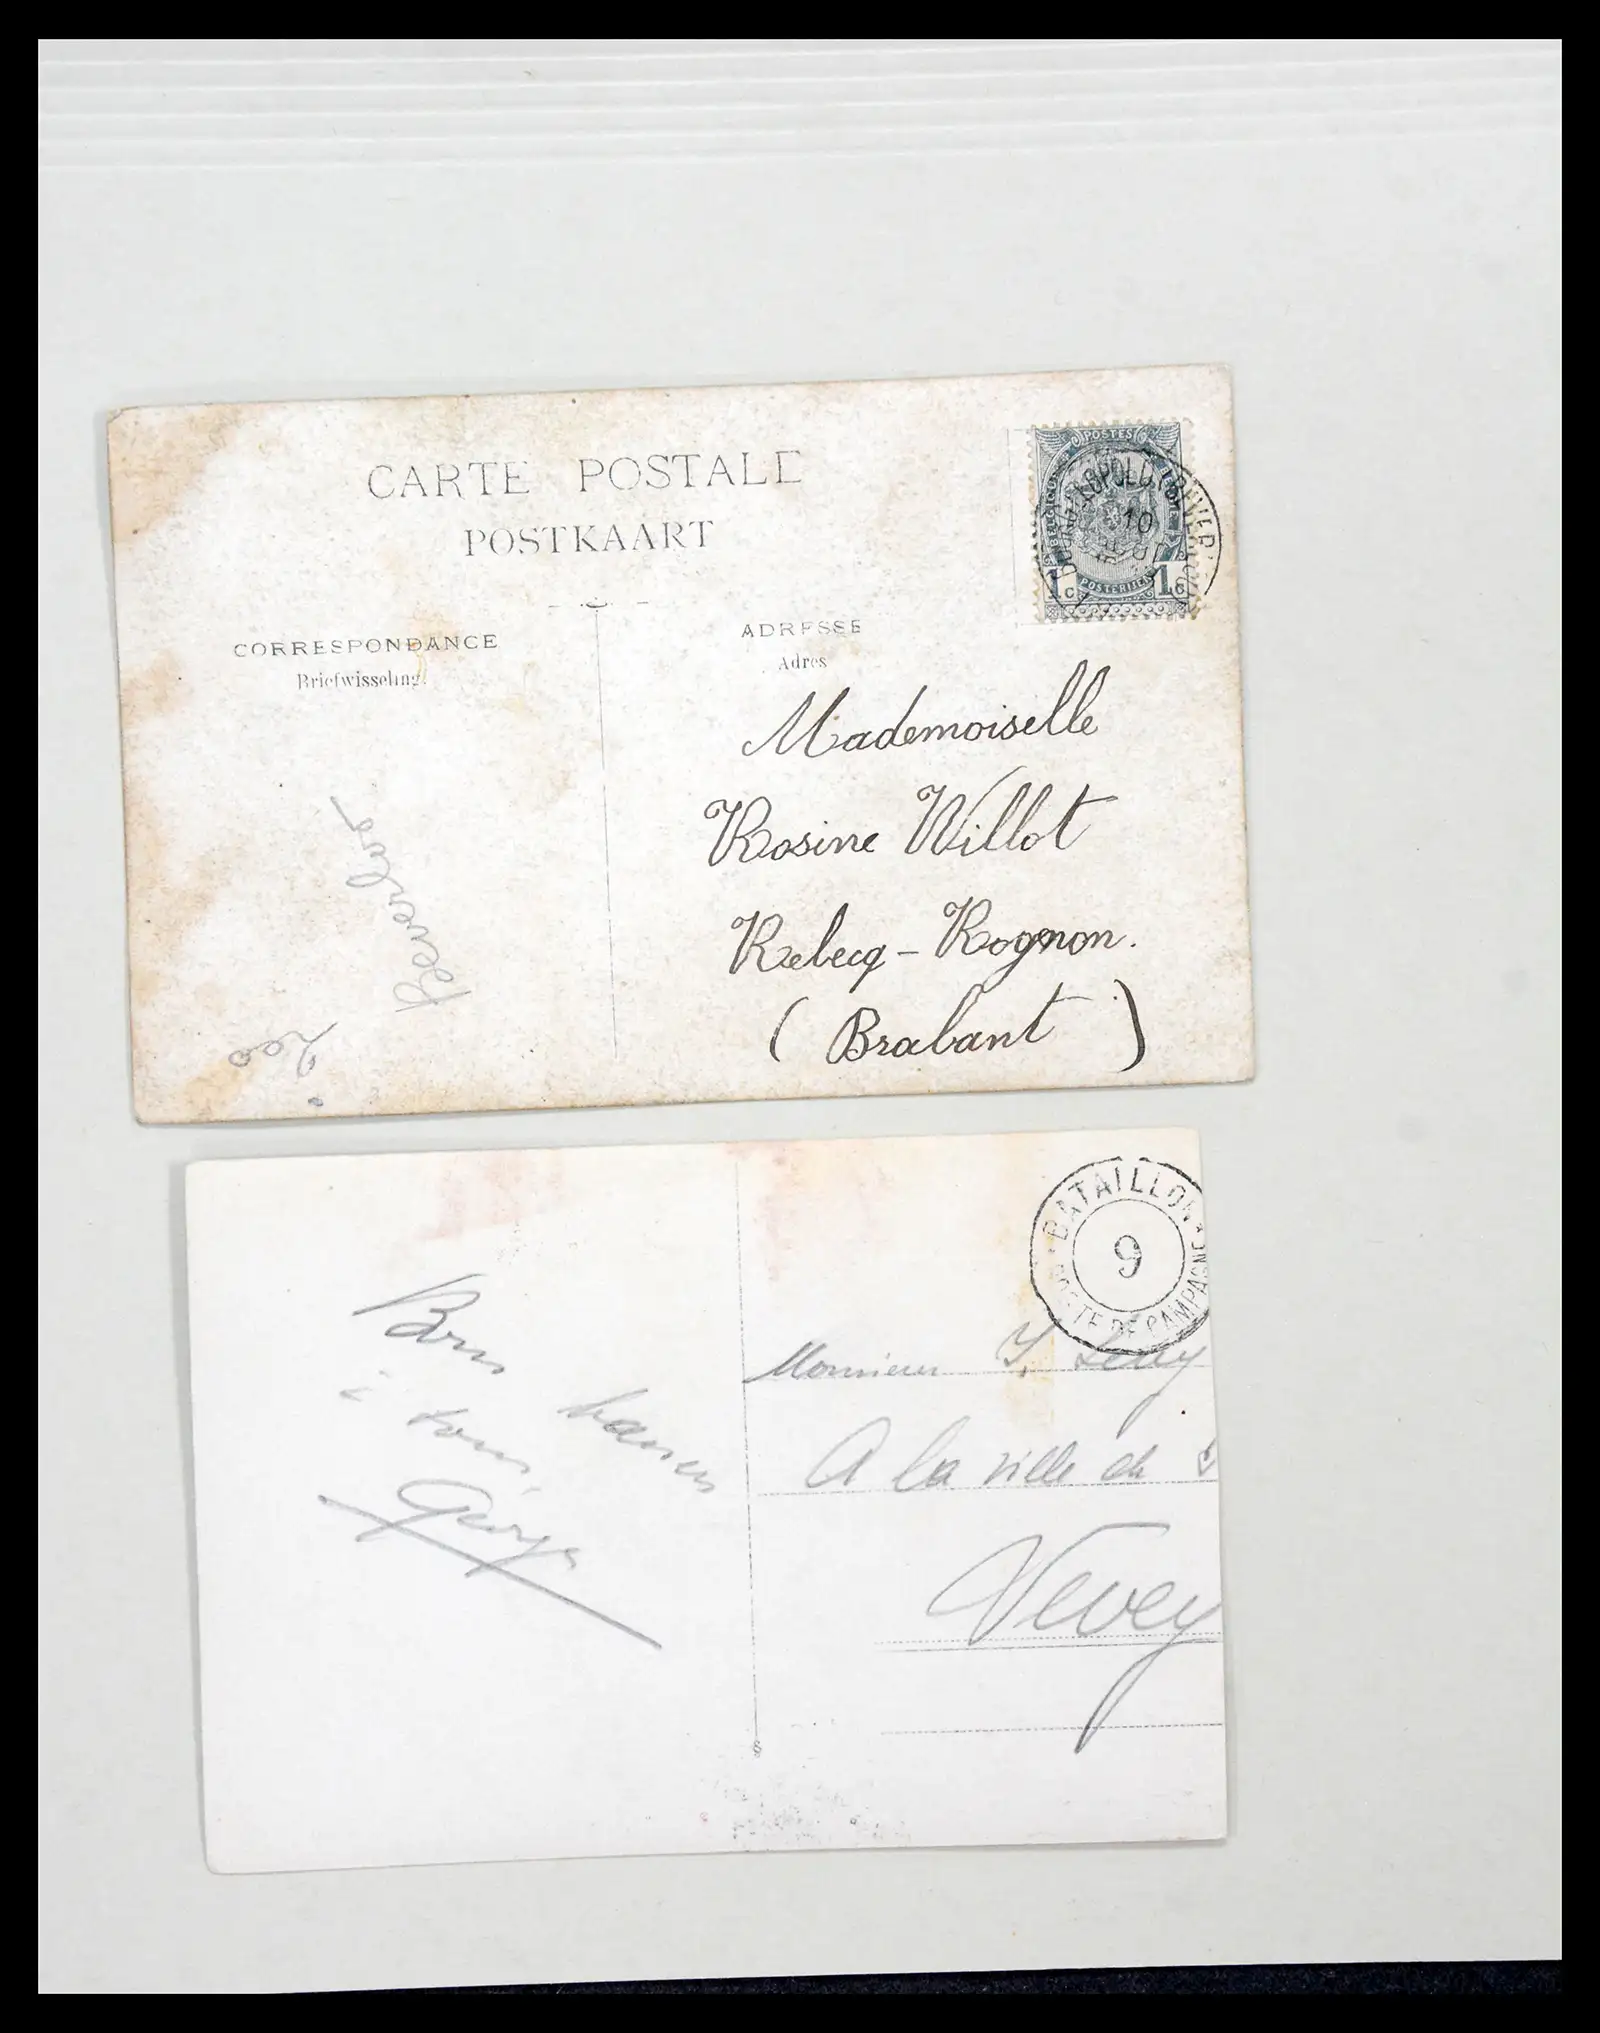 CARTE POSTALE
POSTKAART
CORRESPONDANCE
Briefwisseling.
ADRESSE
Adres
POSTES
BELGIQUE
POSTERIJEN
1c 1c
10
Mademoiselle
Rosine Willot
Rebecq-Rognon.
(Brabant)
Beverloo
200
BATAILLON
9
POSTE DE CAMPAGNE
Monsieur
A la ville de
Vevey
Bons baisers
à tous,
Georges